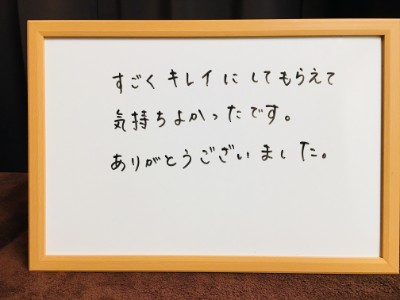 すごくキレイにしてもらえて
気持ちよかったです。
ありがとうございました。